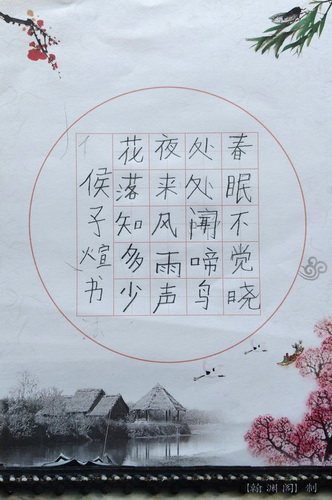 春眠不觉晓
处处闻啼鸟
夜来风雨声
花落知多少
侯子煊书
【翰渊阁】制